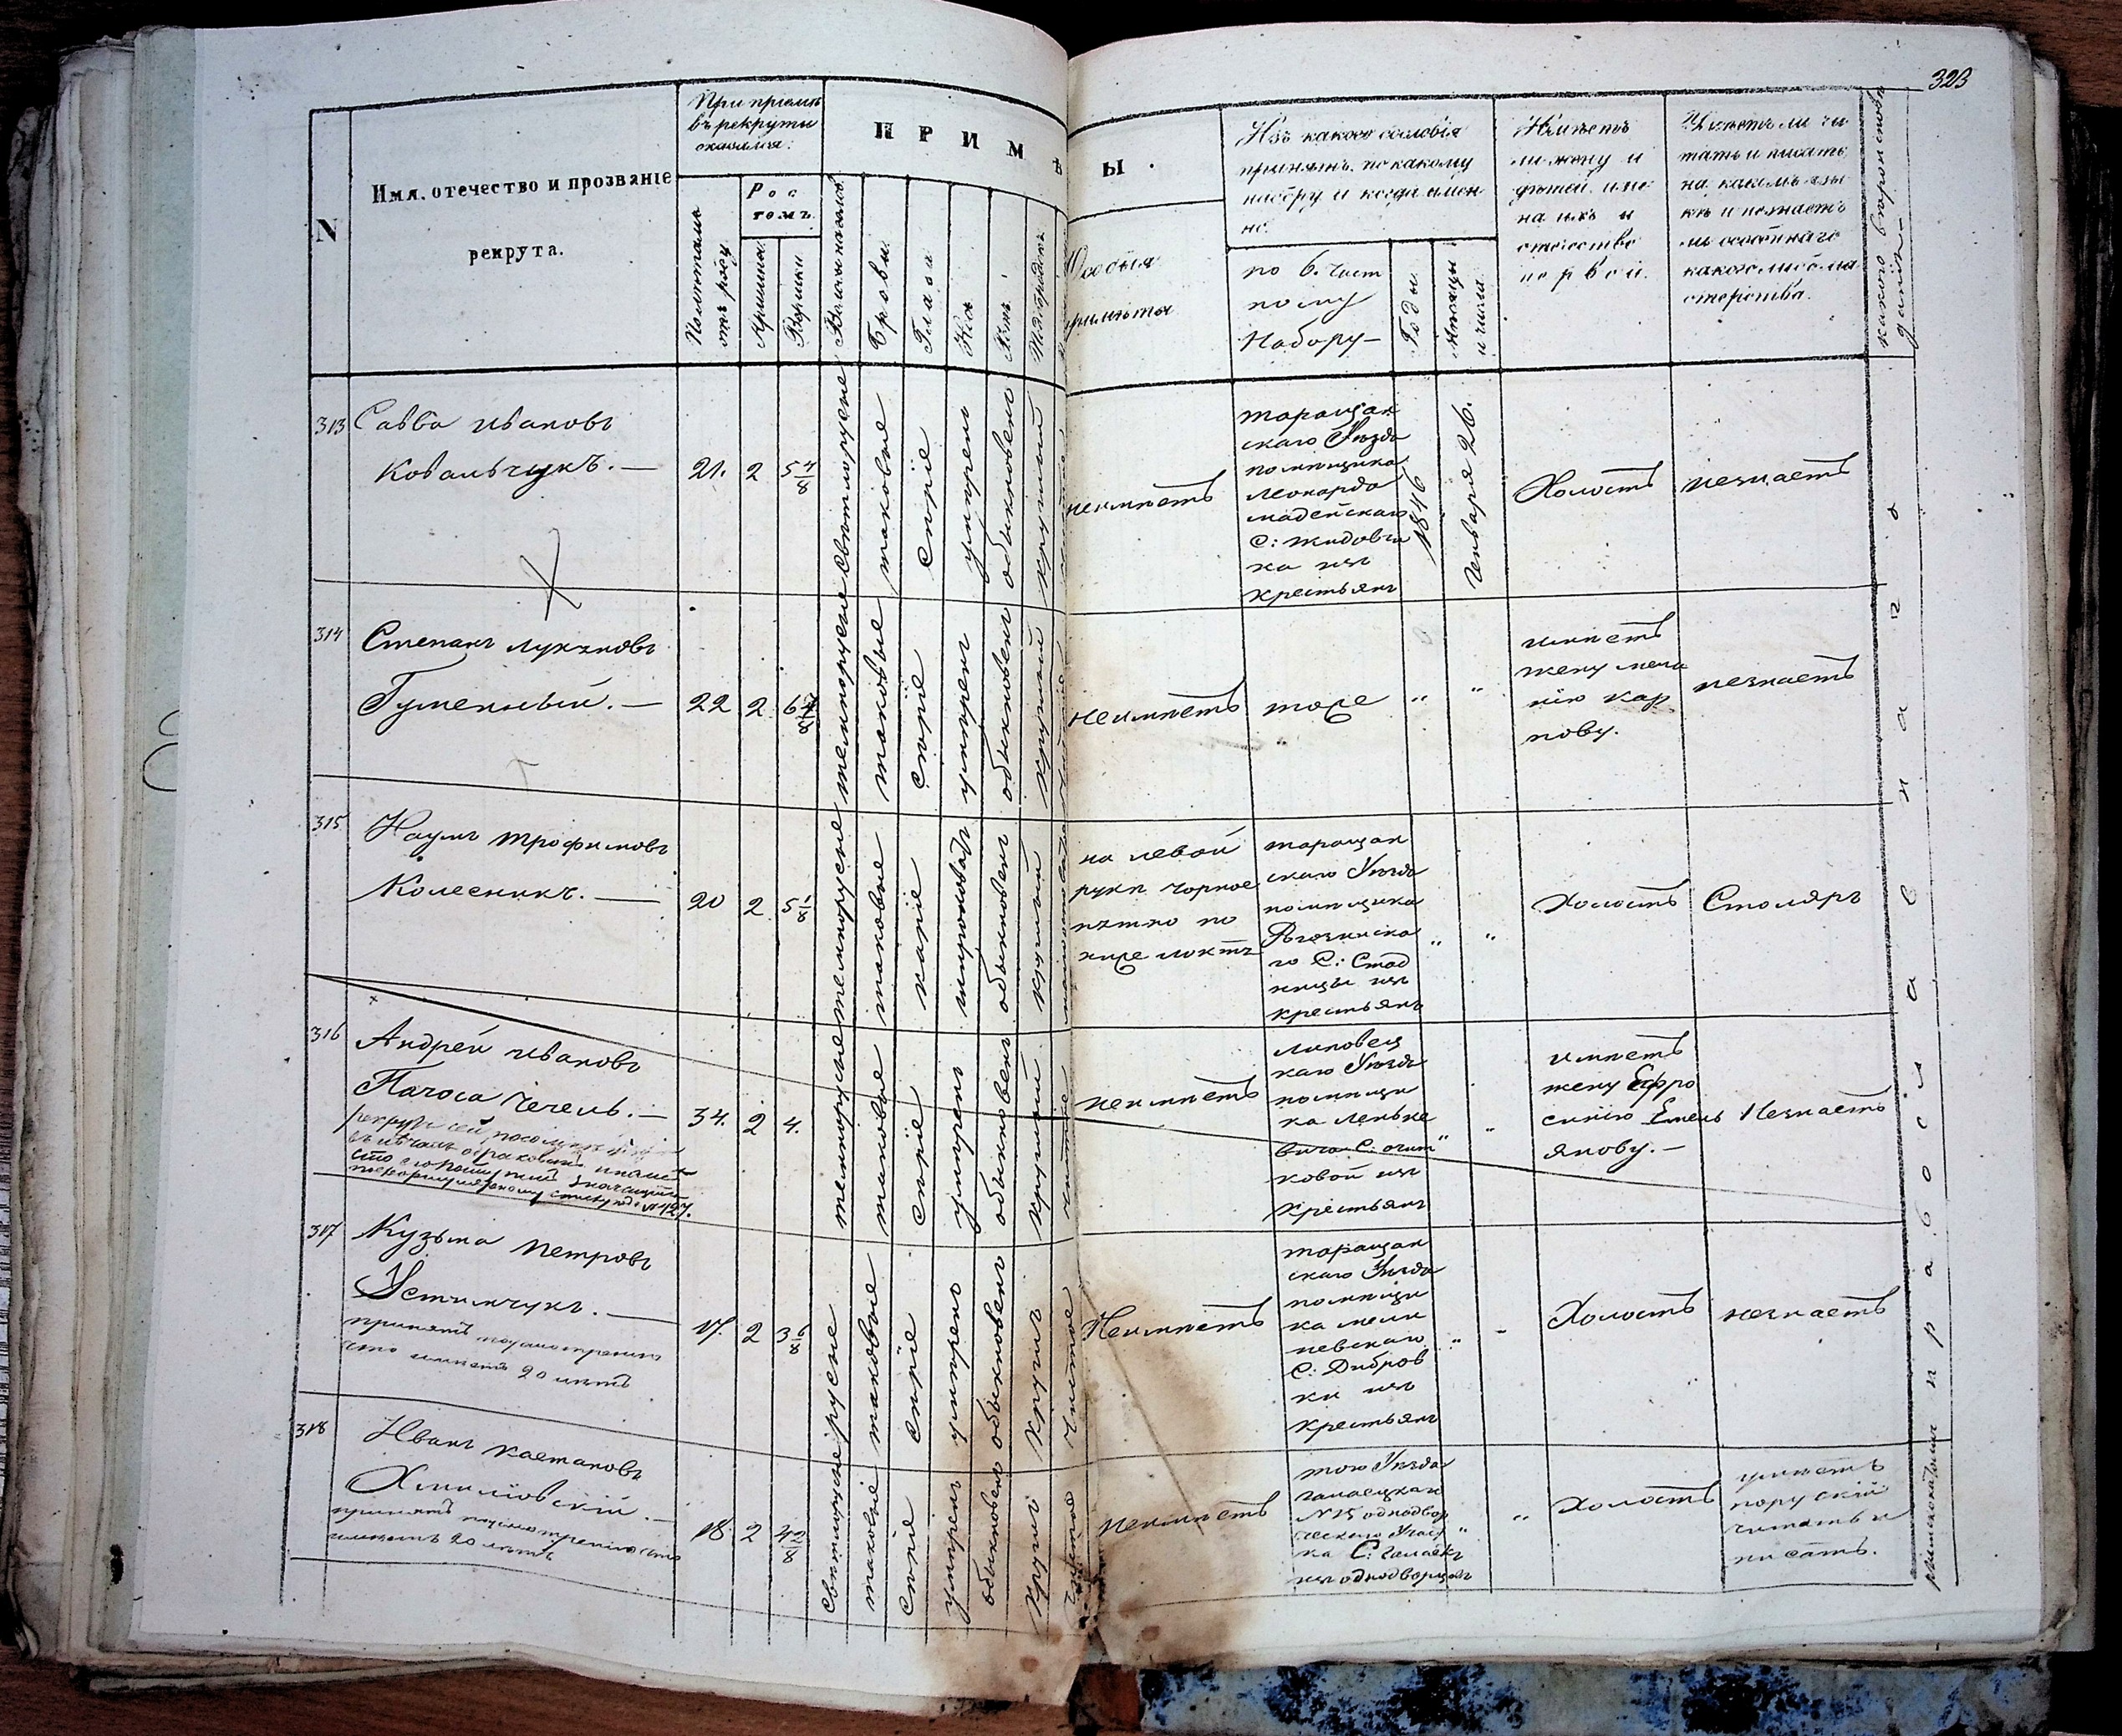 323
N
Имя, отечество и прозваніе
рекрута.
При пріемѣ
въ рекруты
оказался:
Полѣтамъ
отъ роду
Рос
томъ
Аршины
Вершки
П Р И М Ѣ Т Ы .
Брови
Глаза
Носъ
Ротъ
Подбородокъ
Особыя
примѣты
Изъ какого сословія
принятъ, по какому
набору и когда имен
но.
по 6. Част
ному
Набору —
Годы
Мѣсяцы
и числа.
Имѣетъ
ли жену и
дѣтей, име
на ихъ и
отечество
первой.
Умѣетъ ли чи
тать и писать
на какомъ язы
кѣ и незнаетъ
ли особеннаго
какого либо ма
стерства.
какого вѣроисповѣ
данія
313
Савва Ивановъ
Ковальчукъ. —
21.
2
5 4/8
Светлорусые
таковые
Сѣрые
умѣренъ
обыкновенъ
круглый
неимѣетъ
таращан
скаго Уѣзда
помѣщика
Леонарда
Мадейскаго
С: Жидовчи
ка изъ
крестьянъ
1846
Генваря 26.
Холостъ
незнаетъ
314
Степанъ Лукяновъ
Гуменный. —
22
2
темнорусые
таковые
Сѣрые
умѣренъ
обыкновенъ
круглый
неимѣетъ
тоже
"
"
имѣетъ
жену мела
нію Кар
пову.
незнаетъ
315
Наумъ Трофимовъ
Колесникъ. —
20
2
5 1/8
темнорусые
таковые
каріе
широковатъ
обыкновенъ
круглый
на левой
руки чорное
пятно по
ниже локтя
таращан
скаго Уѣзда
помѣщика
го С: Стад
ницы изъ
крестьянъ
"
"
Холостъ
Столяръ
316
Андрей Ивановъ
Пагоса Чечель. —
34.
2
4.
темнорусые
таковые
Сѣрые
умѣренъ
обыкновенъ
круглый
чистое
неимѣетъ
липовец
каго Уѣзда
помѣщи
ка Леньке
вича С: Очит
ковой изъ
крестьянъ
"
"
имѣетъ
жену Ефро
синію Емель
янову. —
Незнаетъ
рекрутъ сей
№ 127.
317
Кузьма Петровъ
Устимчукъ. —
принятъ поусмотренію
что имѣетъ 20 лѣтъ
17.
2
3 6/8
светлорусые
таковые
Сѣрые
умѣренъ
обыкновенъ
кругло
Чистое
Неимѣетъ
таращан
скаго Уѣзда
помѣщи
ка
невскаго
С: Дибров
ки изъ
крестьянъ
"
"
Холостъ
незнаетъ
318
Иванъ Каетановъ
Хмилiовскій. —
принятъ поусмотренію что
имѣетъ 20 лѣтъ
18.
2
4 2/8
светлорусые
таковые
Сѣрые
умѣренъ
обыкновенъ
кругло
чистое
неимѣетъ
того Уѣзда
N 15 однодвор
ческаго Учас
ка С:
изъ однодворцовъ
"
"
Холостъ
умѣетъ
поруский
читать и
писать.
православнаго